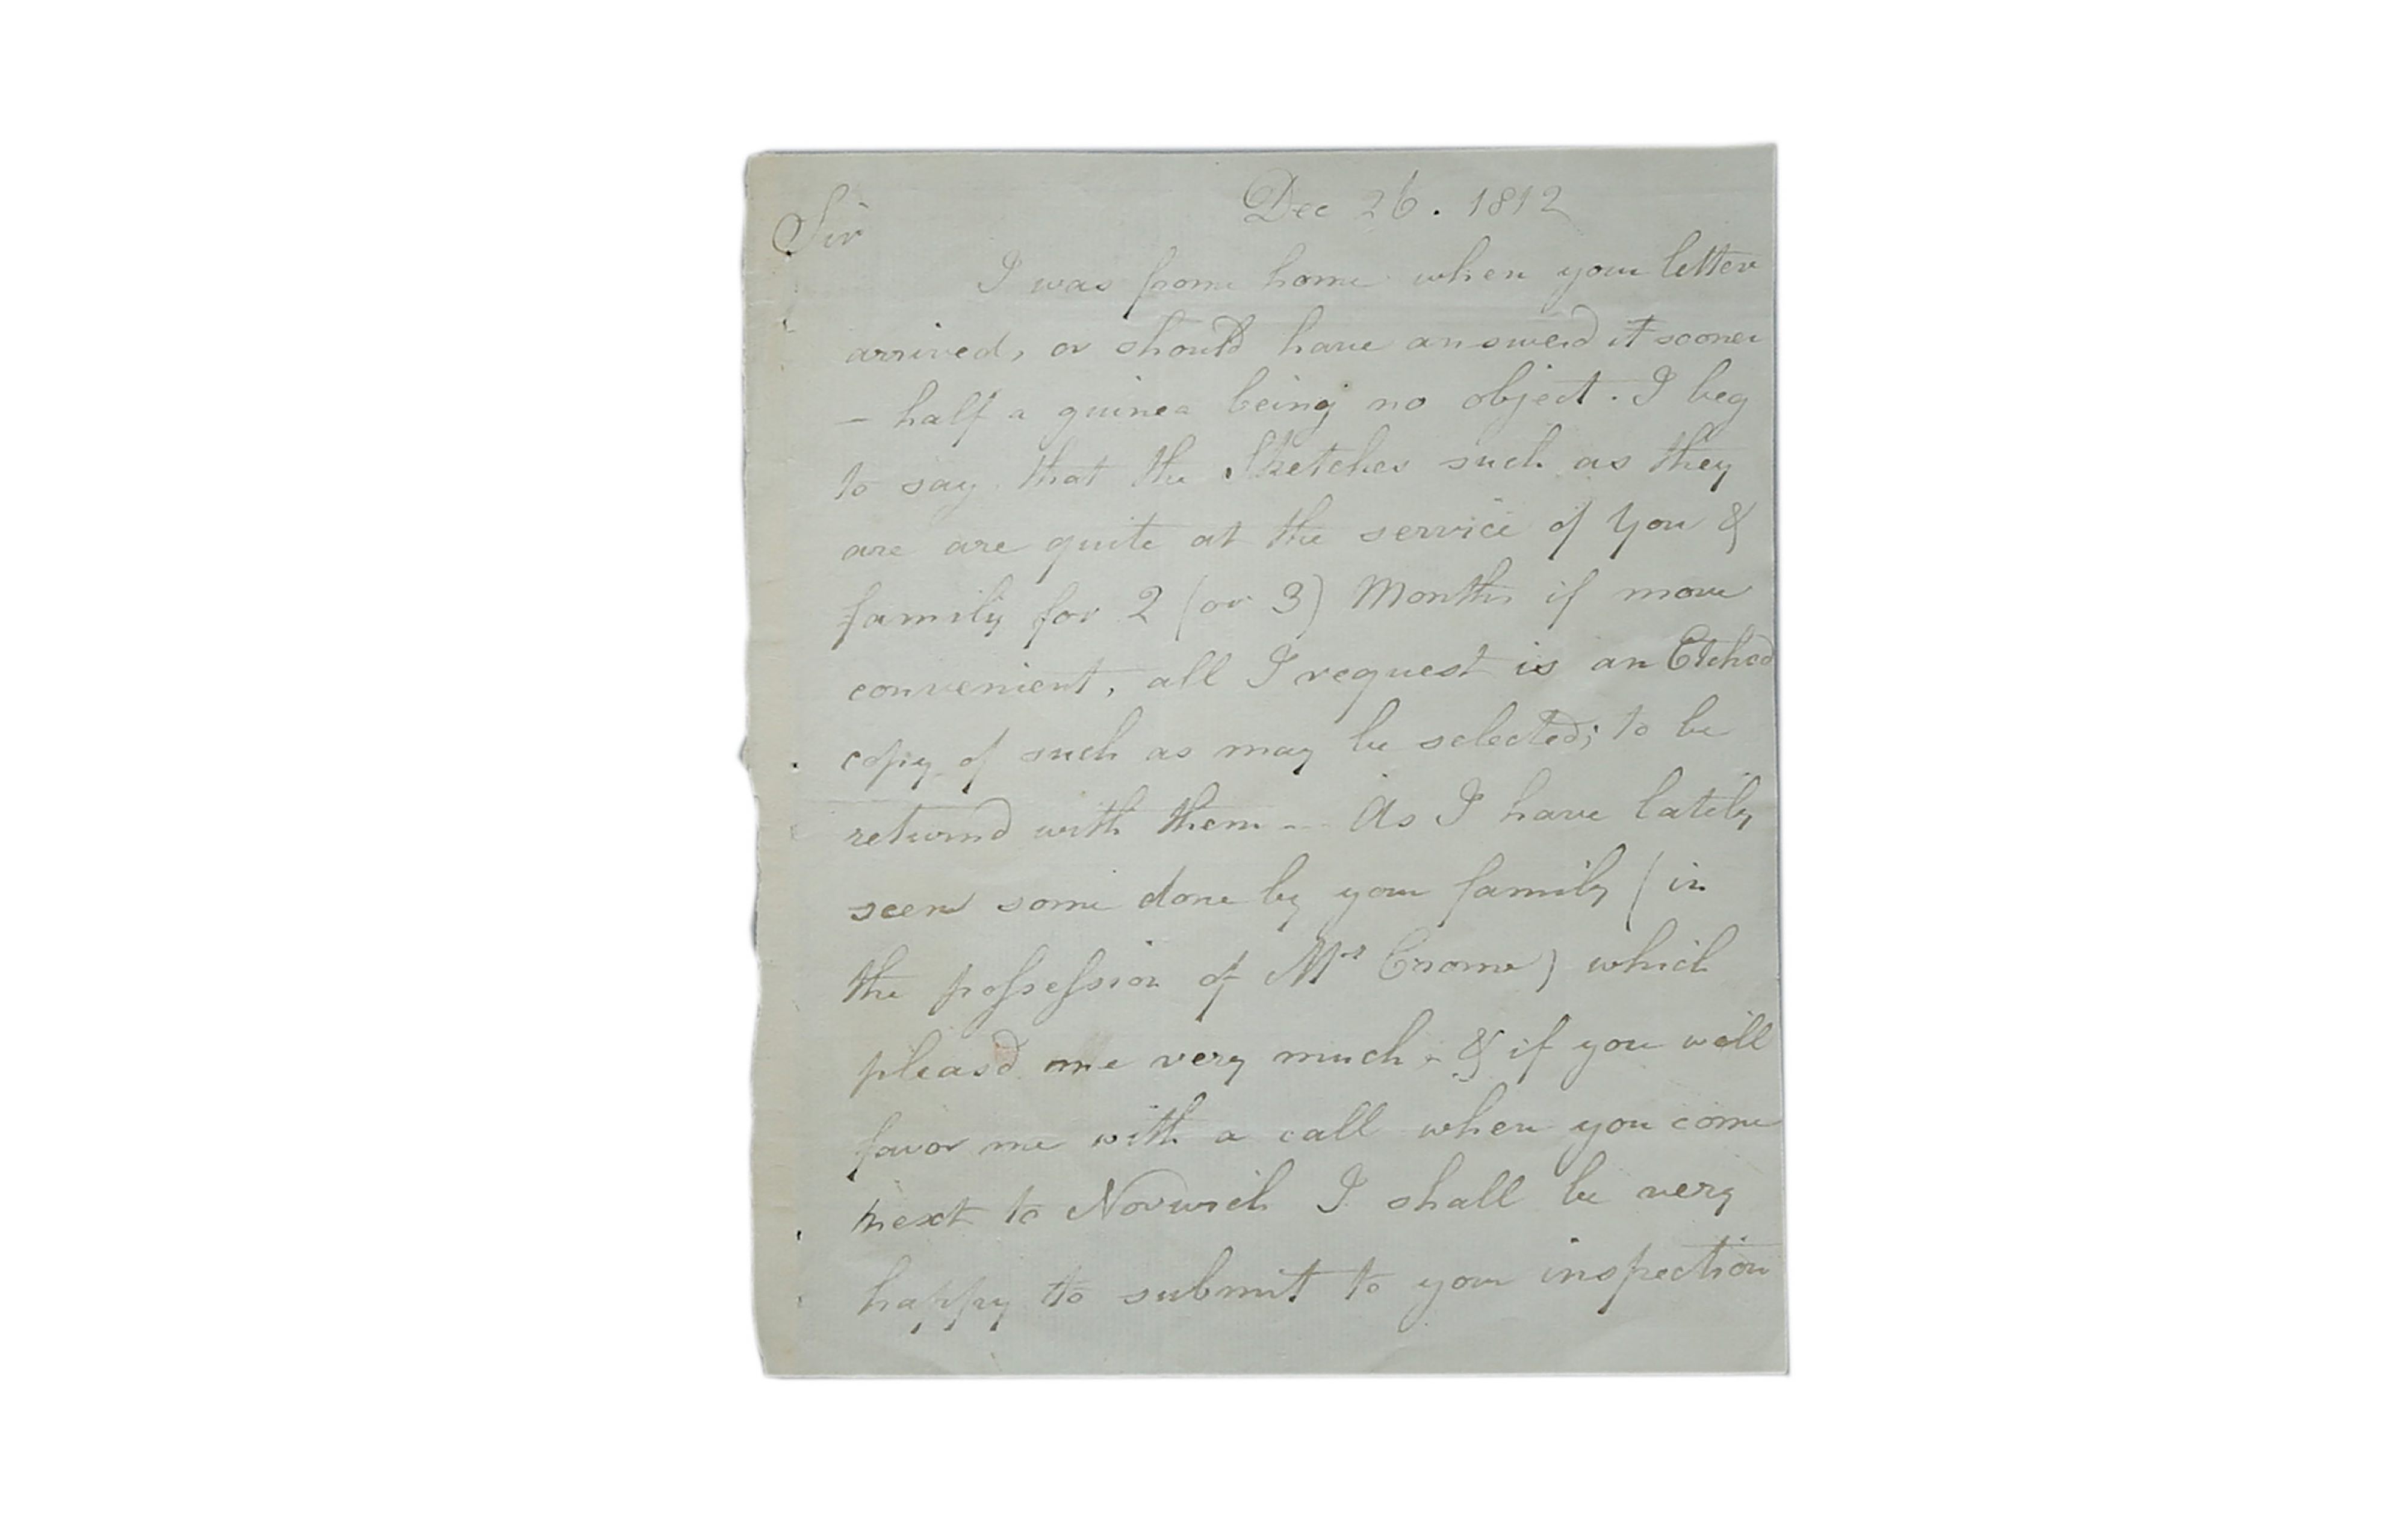 Dec 26. 1812
Sir
I was from home when your letter
arrived, or should have answerd it sooner
— half a guinea being no object. I beg
to say that the Sketches such as they
are are quite at the service of You &
family for 2 (or 3) Months if more
convenient, all I request is an Etched
copy of such as may be selected; to be
returnd with them — As I have lately
seen some done by your family (in
the possession of Mr Crome) which
pleasd me very much - & if you will
favor me with a call when you come
next to Norwich I shall be very
happy to submit to your inspection